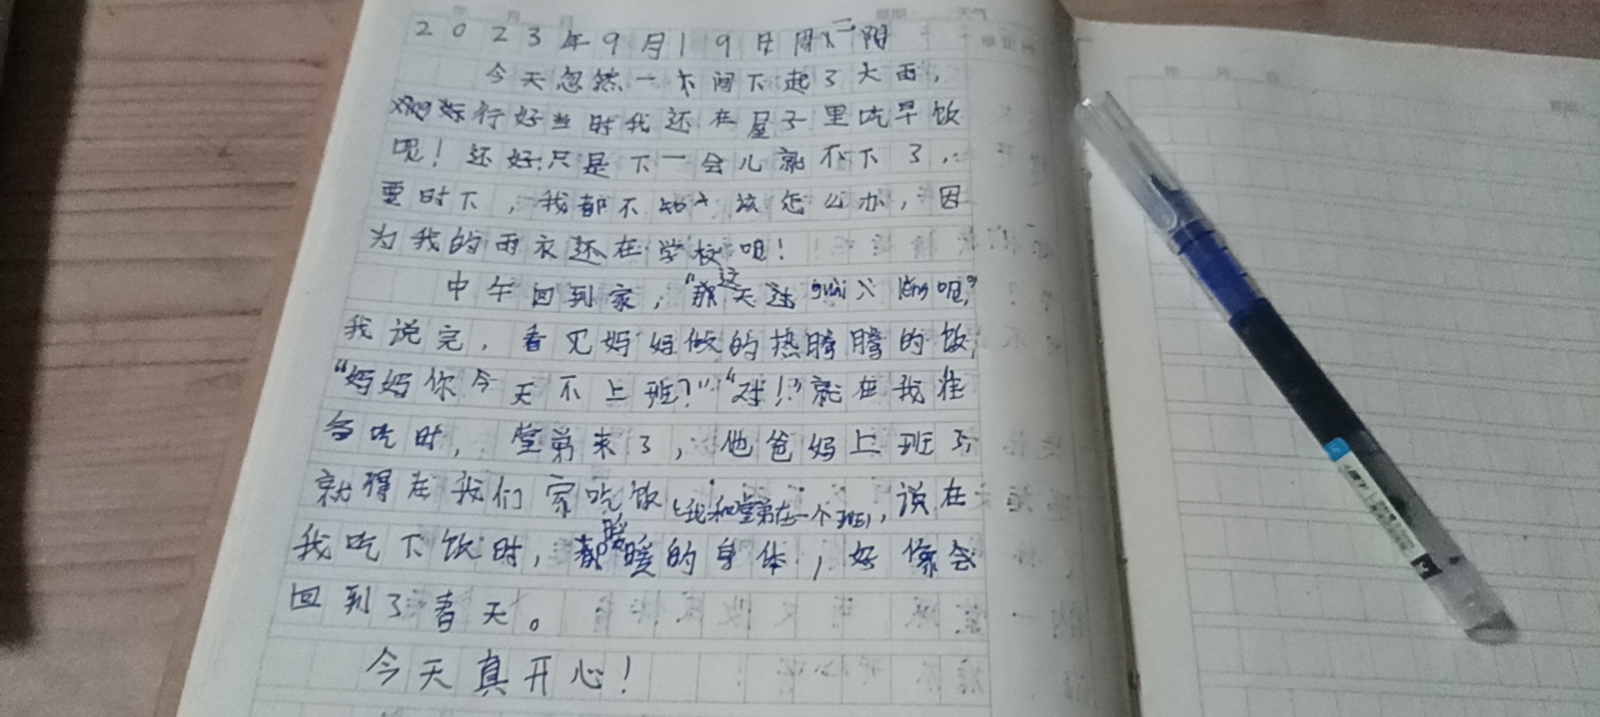 2023年9月19日周二阴
今天忽然一下间下起了大雨,
行好当时我还在屋子里吃早饭
呢!还好只是下一会儿就不下了,
要时下,我都不知该怎么办,因
为我的雨衣还在学校呢!
中午回到家,"这天这guǐ 呢?"
我说完,看见妈妈做的热腾腾的饭,
"妈妈你今天不上班?""对!"就在我准
备吃时,堂弟来了,他爸妈上班了,
就得在我们家吃饭(我和堂弟在一个班),说在
我吃下饭时,暖暖的身体,好像会
回到了春天。
今天真开心!